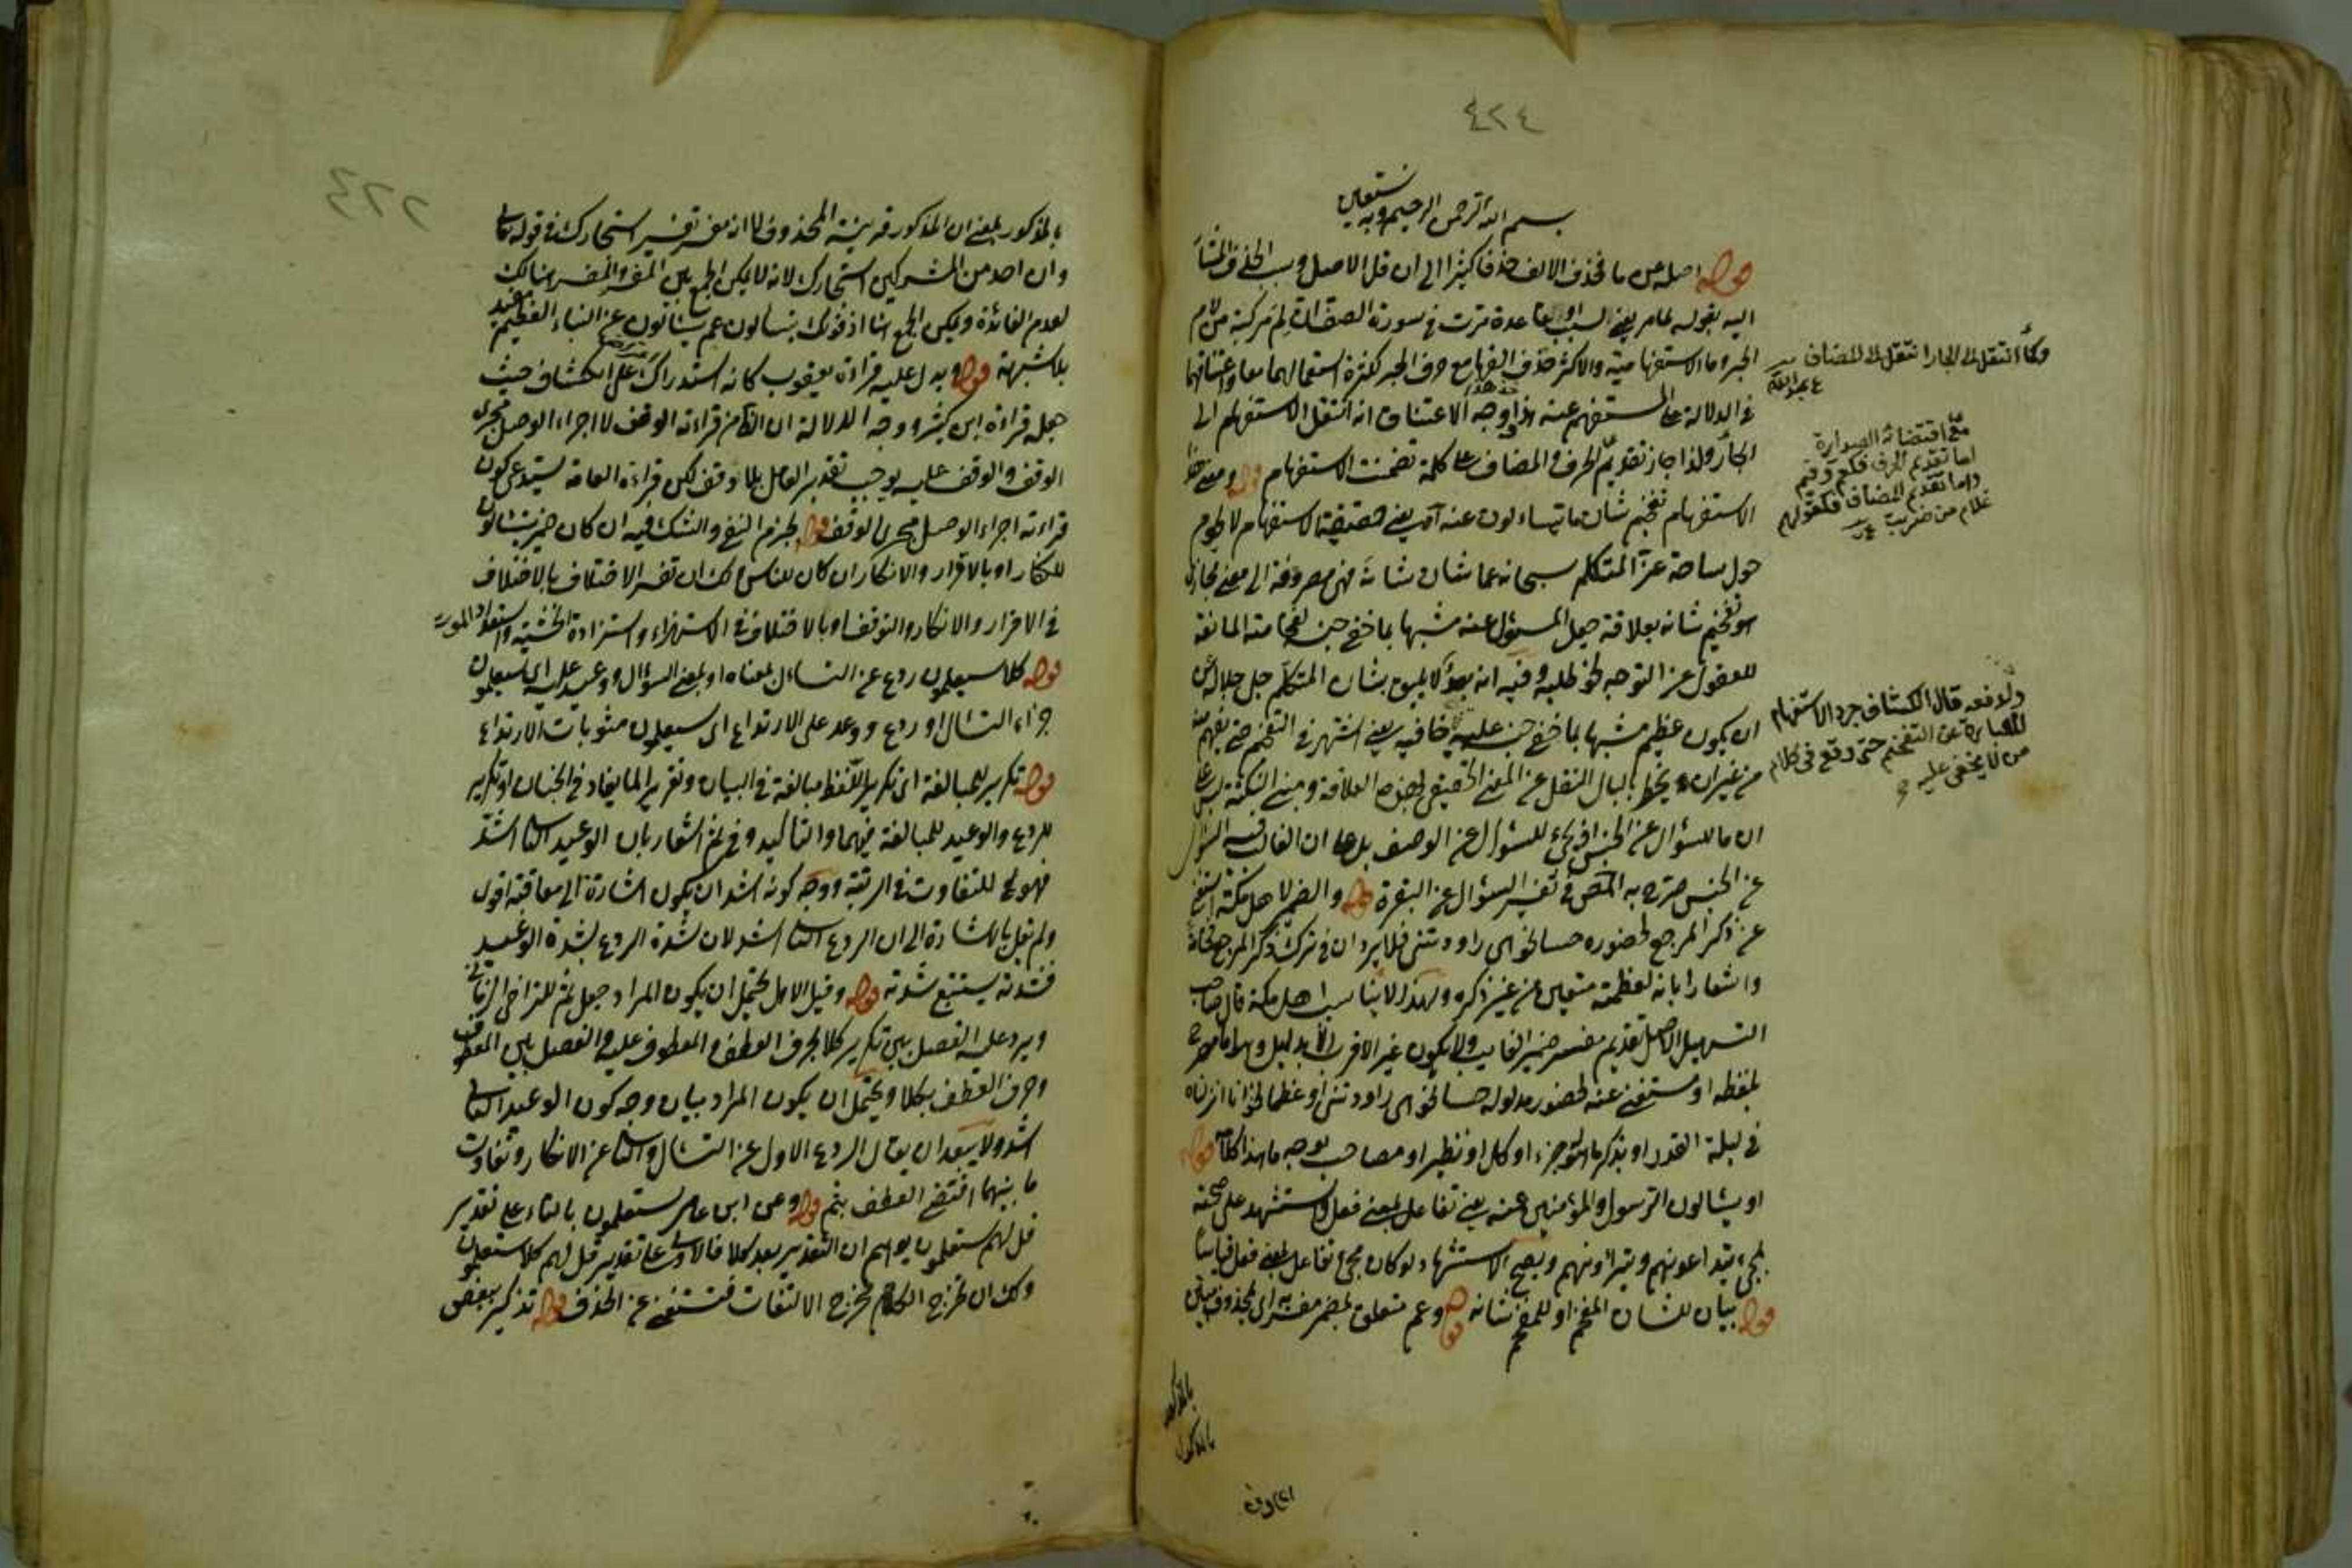 ٤٢٤
بسم الله الرحمن الرحيم وبه نستعين
قوله اصله عن ما فحذف الالف حذفا كثيرا الى ان قل الاصل وسبب الحذف المشار
اليه بقوله لما مر يعنى السبب او القاعدة مرت فى سورة الصف ان لم مركبة من لام
الجر وما الاستفهامية والاكثر حذف الفها مع حرف الجر لكثرة استعمالهما معا واعتناقهما
فى الدلالة على المستفهم عنه هذا ووجه الاعتناق انه انتقل الاستفهام الى
الجار ولذا جاز تقديم الحرف والمضاف على كلمة تضمنت الاستفهام قوله ومعنى هذا
الاستفهام تفخيم شان ما يتساءلون عنه آه يعنى حقيقة الاستفهام لا يحوم
حول ساحة عز المتكلم سبحانه عما شان شانه فهى مصروفة الى معنى مجازى
هو تفخيم شانه بعلاقة جعل المسؤل عنه مشبها بما خفى جنسه لفخامته المانعة
للعقول عن التوجه نحو طلبه وفيه انه لا يليق بشان المتكلم جل جلاله
ان يكون عظيم مشبها بما خفى جنسه عليه خافيه يعنى اشتهر فى التفخيم حتى يفهم منه
من غير ان يخطر بالبال النقل عن المعنى الحقيقى العلاقة ومبنى النكتة ليس على
ان ما للسؤال عن الجنس فى للسؤال عن الوصف بل على ان الغالب السؤال
عن الجنس صرح به المص فى تفسير السؤال عن البقرة قوله والضمير لاهل مكة استغنى
عن ذكر المرجع لحضوره حسا نحو هى راودتنى فلا يرد ان فى ترك ذكر المرجع
واشعارا بانه لعظمته متعين عن غير ذكره ولهذا لا يناسب اهل مكة قال صاحب
التسهيل الاصل تقديم مفسر ضمير الغائب ولا يكون غير الاقرب الا بدليل وهو اما مصرح
بلفظه او مستغنى عنه لحضور مدلوله حسا نحو هى راودتنى او علما نحو انا انزلناه
فى ليلة القدر او بذكر ما هو له جزء او كل او نظير او مصاحب بوجه ما هذا كلامه قوله
او يسالون الرسول والمؤمنين عنه يعنى تفاعل بمعنى فعل واستشهد على صحته
بمجىء يتداعونهم ويتراونهم ويصح الاستشهاد لو كان مجىء تفاعل بمعنى فعل قياسا
قوله بيان لشان المفخم او للمفخم شانه قوله وعم متعلق بمضمر مفسر به اى بمحذوف
بالمذكور
بالمذكور
وكما انتقل الى الجار انتقل الى المضاف
مع اقتضائه الصدارة
اما تقديم الحرف فكعم وفيم
واما تقديم المضاف فكقولهم
غلام من ضربت
ولدفعه قال الكشاف جرد الاستفهام
للعبارة عن التفخيم حتى وقع فى كلام
من لا يخفى عليه
٤٢٢
بالمذكور بمعنى ان المذكور قرينة المحذوف لا انه مفسر تفسير استجارك فى قوله تعالى
وان احد من المشركين استجارك لانه لا يمكن الجمع بين المفسر والمفسر هنالك
لعدم الفائدة ويمكن الجمع هنا اذ قولك يتسالون عم يتسالون عن النباء العظيم مفيد
بلا شبهة قوله ويدل عليه قراءة يعقوب كانه استدراك على الكشاف حيث
جعله قراءة ابن كثير ووجه الدلالة ان الظاهر من قراءته الوقف لا اجراء الوصل مجرى
الوقف والوقف عليه يوجب تقدير العامل بلا توقف لكن قراءة العامة يستدعى كون
قراءته اجراء الوصل مجرى الوقف قوله بجزم النفى والشك فيه ان كان ضمير يتسالون
للكفار او بالاقرار والانكار ان كان للناس ولك ان تفسر الاختلاف بالاختلاف
فى الاقرار والانكار والتوقف او بالاختلاف فى الاستهزاء واستزادة الخشية واستعداد الموت
قوله كلا سيعلمون ردع عن التساءل بمعناه او بمعنى السؤال ووعيد عليه اى سيعلمون
جزاء التسال او ردع ووعد على الارتداع اى سيعلمون مثوبات الارتداع
قوله تكرير للمبالغة اى تكرير اللفظ مبالغة فى البيان وتقرير لما يفاد فى الجنان او تكرير
للردع والوعيد للمبالغة فيهما والتاكيد وفى ثم اشعار بان الوعيد الثانى اشد
فهو ثم للتفاوت فى الرتبة ووجه كونه اشد ان يكون اشارة الى معاقبة اقول
ولم يقل بالاشارة الى ان الردع الثانى اشد لان شدة الردع بشدة الوعيد
فشدته يستتبع شدته قوله وقيل الاول يحتمل ان يكون المراد جعل ثم للتراخى الزمانى
ويرد عليه الفصل بين تكرير كلا بحرف العطف والمعطوف عليه والفصل بين المعطوف
وحرف العطف بكلا ويحتمل ان يكون المراد بيان وجه كون الوعيد الثانى
اشد ولا يبعد ان يقال الردع الاول عن التسال والثانى عن الانكار وتفاوت
ما بينهما اقتضى العطف بثم قوله وعن ابن عامر ستعلمون بالتاء على تقدير
قل لهم ستعلمون يوهم ان التقدير بعد كلا فالاولى على تقدير قل لهم كلا ستعلمون
ولك ان تخرج الكلام مخرج الالتفات فتستغنى عن الحذف قوله تذكير ببعض